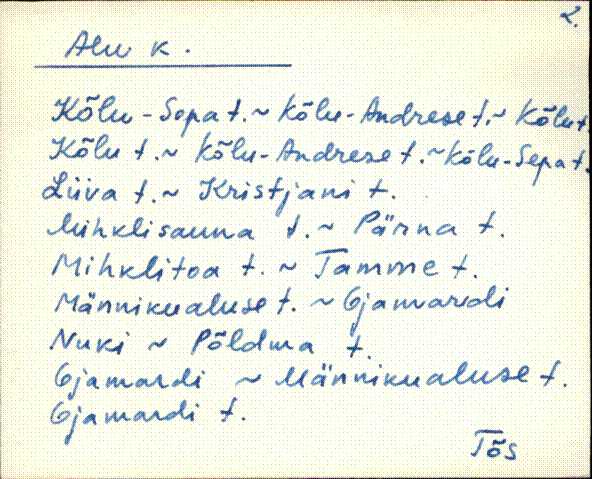 2.
Alu k.
Kõlu-Sepa t. ~ Kõlu-Andrese t. ~ Kõlu t.
Kõlu t. ~ Kõlu-Andrese t. ~ Kõlu-Sepa t.
Liiva t. ~ Kristjani t.
Mihklisauna t. ~ Pärna t.
Mihklitoa t. ~ Tamme t.
Männikualuse t. ~ Ojamardi
Nuki ~ Põldma t.
Ojamardi ~ Männikualuse t.
Ojamardi t.
Tõs